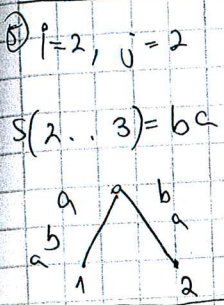 5) i=2, j=2
S(2..3)=ba
a b
b a
a
1 2